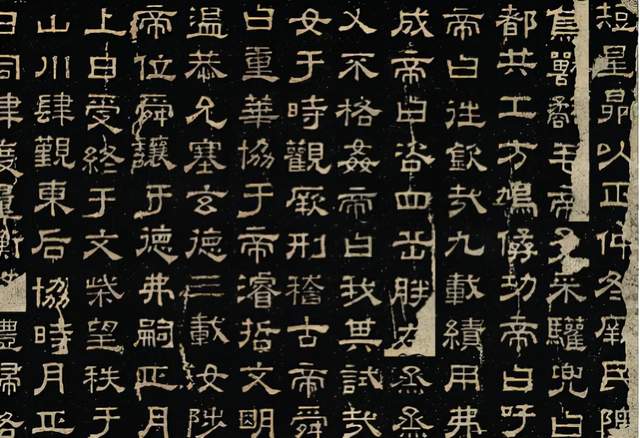 短星昴以正仲冬厥民隩
鳥獸矞毛帝予采驩兜曰
都共工方鳩僝功帝曰吁
帝曰往欽哉九載績用弗
成帝曰咨四岳朕烝烝
乂不格姦帝曰我其試哉
女于時觀厥刑稽古帝舜
曰重華協于帝濬哲文明
溫恭允塞玄德三載汝陟
帝位舜讓于德弗嗣正月
上日受終于文柴望秩于
山川肆覲東后協時月正
日同律度量衡禮歸格